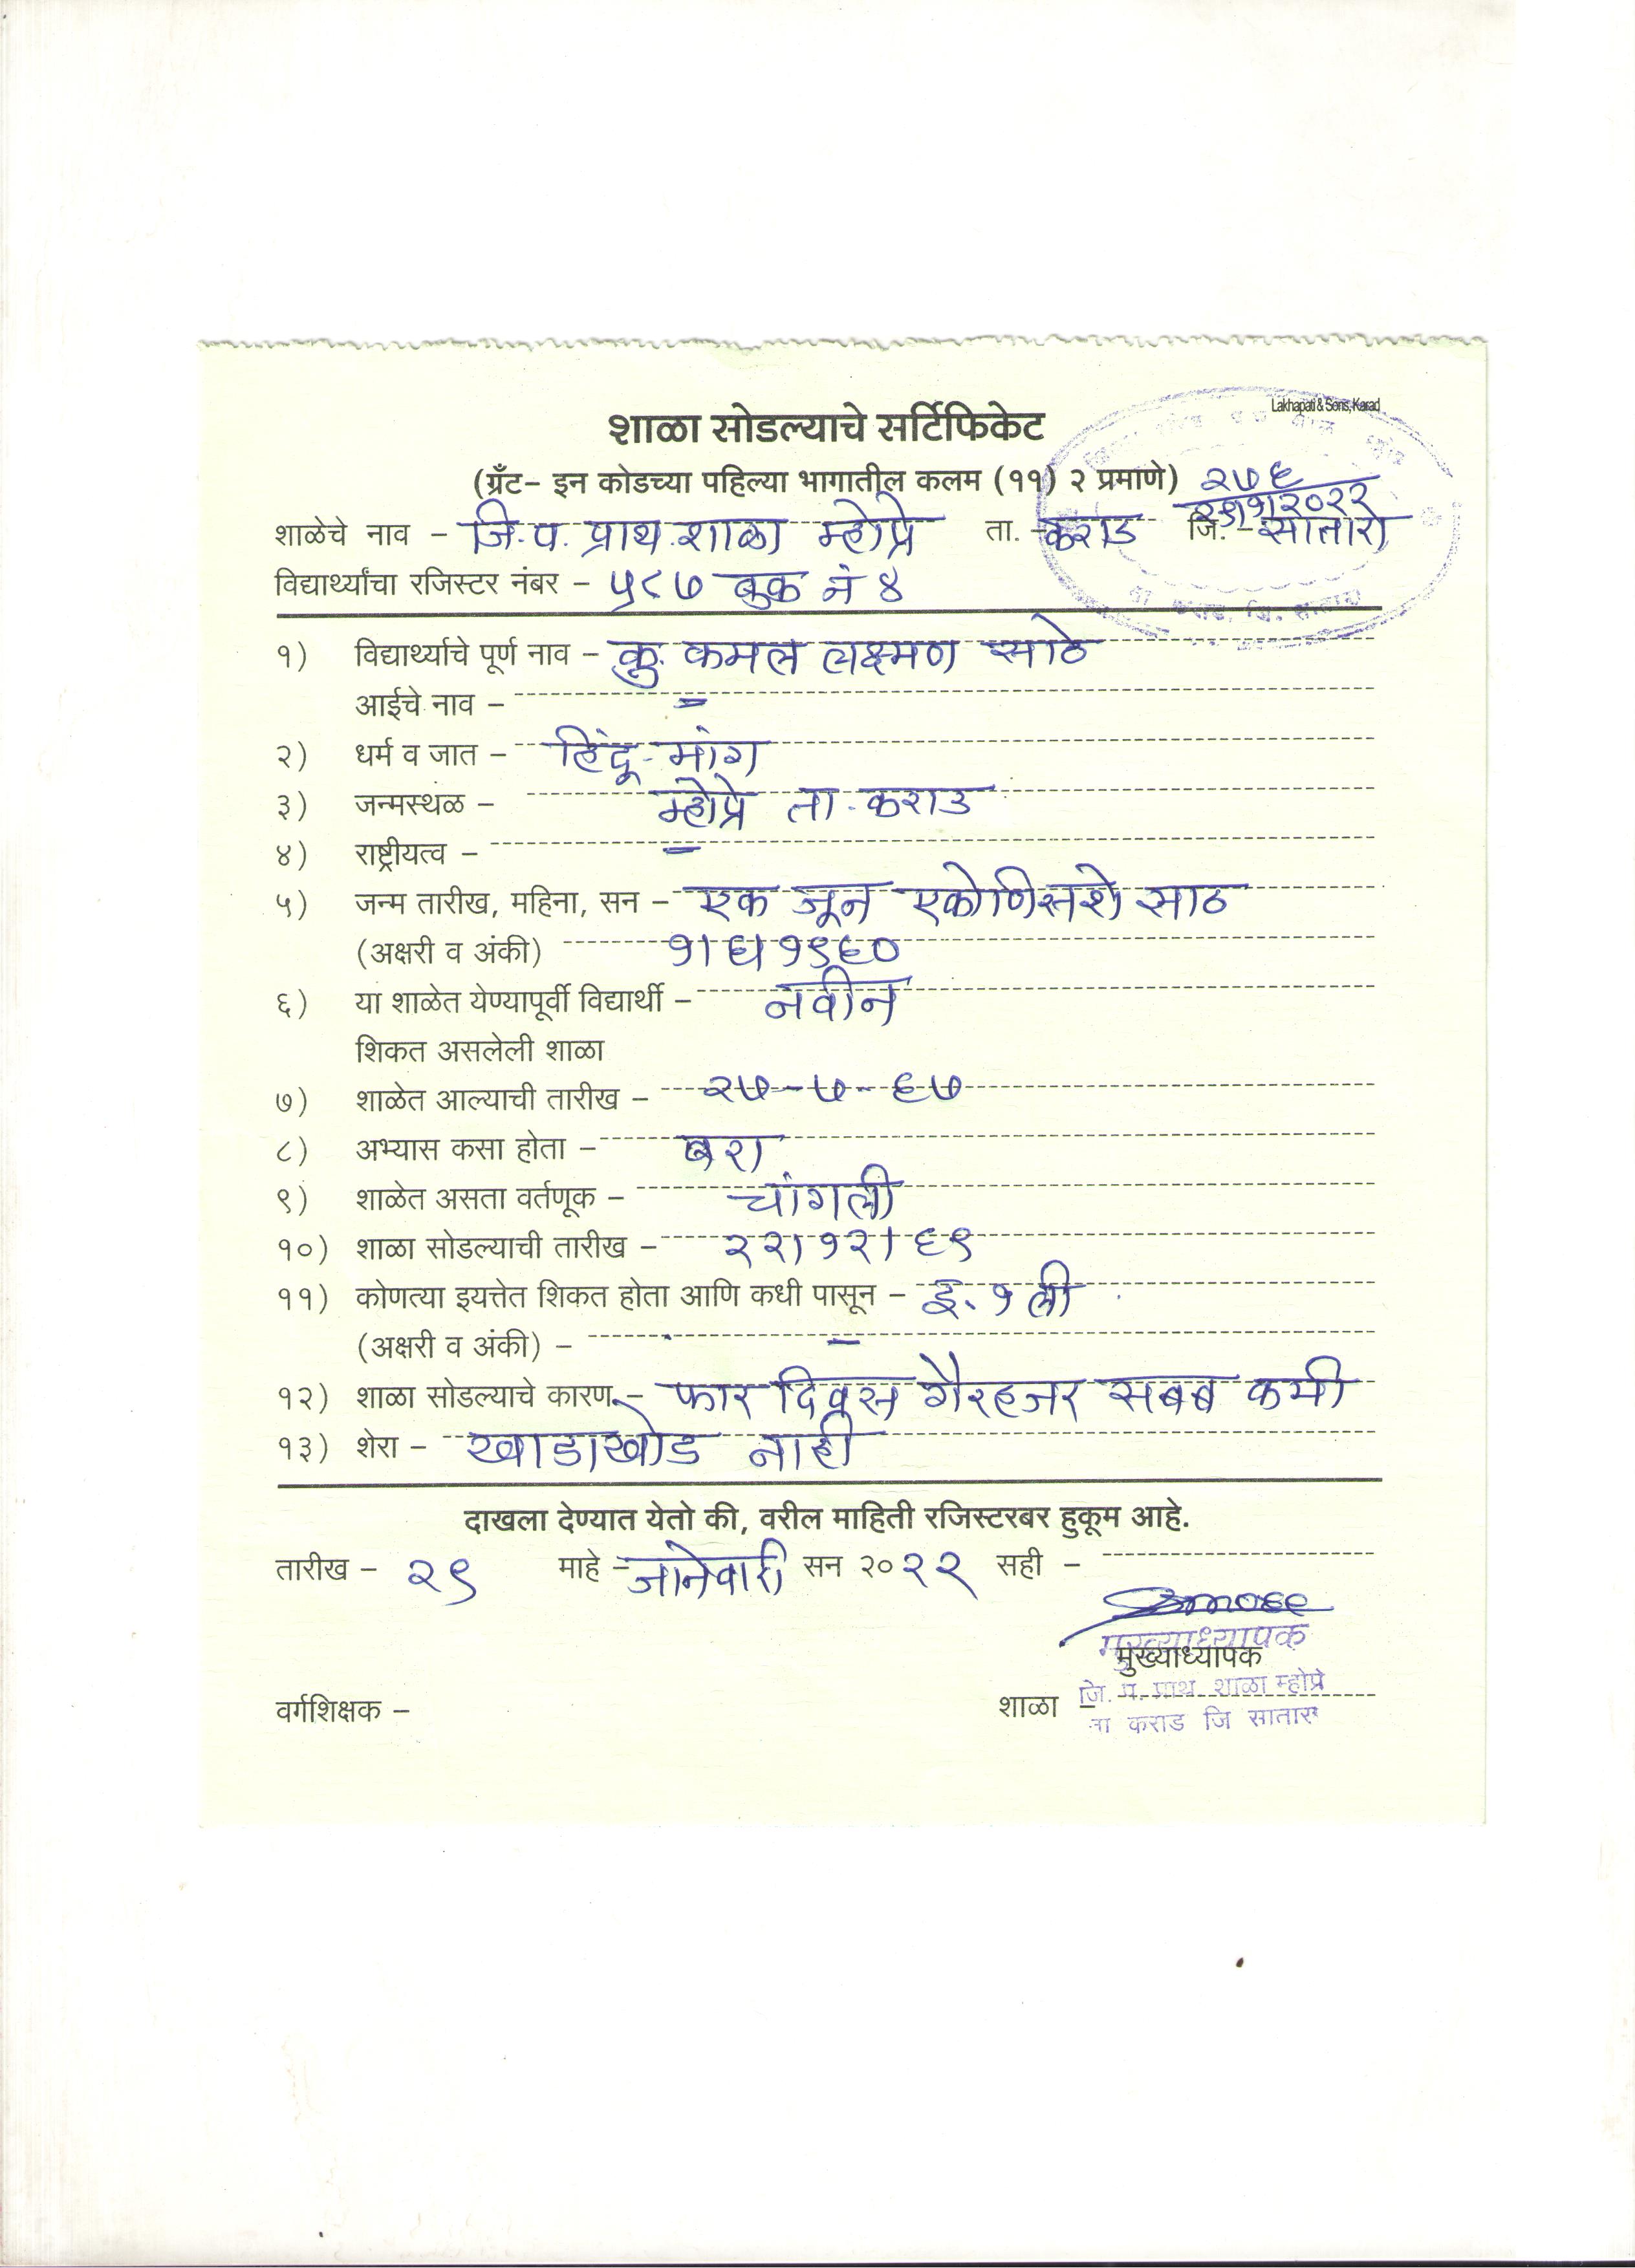 Lakhapati & Sons, Karad
शाळा सोडल्याचे सर्टिफिकेट
(ग्रँट- इन कोडच्या पहिल्या भागातील कलम (११) २ प्रमाणे) २७६
२९/१/२०२२
शाळेचे नाव - जि.प. प्राथ.शाळा म्होप्रे ता. - कराड जि. - सातारा
विद्यार्थ्यांचा रजिस्टर नंबर - ५८७ बुक नं ४
१) विद्यार्थ्याचे पूर्ण नाव - कु. कमल लक्ष्मण साठे
आईचे नाव - -
२) धर्म व जात - हिंदू- मांग
३) जन्मस्थळ - म्होप्रे ता. कराड
४) राष्ट्रीयत्व - -
५) जन्म तारीख, महिना, सन - एक जून एकोणिसशे साठ
(अक्षरी व अंकी) १।६।१९६०
६) या शाळेत येण्यापूर्वी विद्यार्थी - नवीन
शिकत असलेली शाळा
७) शाळेत आल्याची तारीख - २७-७-६७
८) अभ्यास कसा होता - बरा
९) शाळेत असता वर्तणूक - चांगली
१०) शाळा सोडल्याची तारीख - २२।१२।६९
११) कोणत्या इयत्तेत शिकत होता आणि कधी पासून - इ. १ ली
(अक्षरी व अंकी) - -
१२) शाळा सोडल्याचे कारण - फार दिवस गैरहजर सबब कमी
१३) शेरा - खाडाखोड नाही
दाखला देण्यात येतो की, वरील माहिती रजिस्टरबर हुकूम आहे.
तारीख - २९ माहे - जानेवारी सन २०२२ सही -
मुख्याध्यापक
मुख्याध्यापक
वर्गशिक्षक - शाळा - जि. प. प्राथ. शाळा म्होप्रे
ता कराड जि सातारा